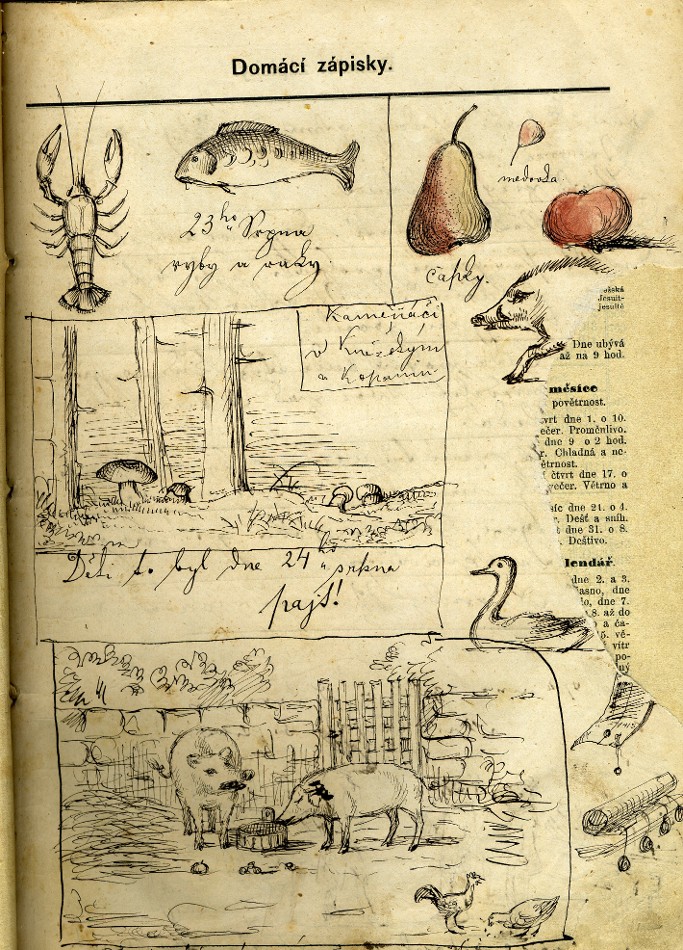 Domácí zápisky.
23ho Srpna
ryby a raky.
medovka
čapky.
Kamejňáčí
v
a Kopanin
Děti to byl dne 24ho srpna
pajs!
Dne ubývá
až na 9 hod.
měsíce
povětrnost.
vrt dne 1. o 10.
ečer. Proměnlivo.
dne 9 o 2 hod.
r. Chladná a ne-
ětrnost.
čtvrt dne 17. o
večer. Větrno a
íc dne 21. o 4.
r. Dešť a sníh.
t dne 31. o 8.
. Deštivo.
lendář.
dne 2. a 3.
jasno, dne
do, dne 7.
18. až do
o a ča-
5. vě-
vítr
po-
ný